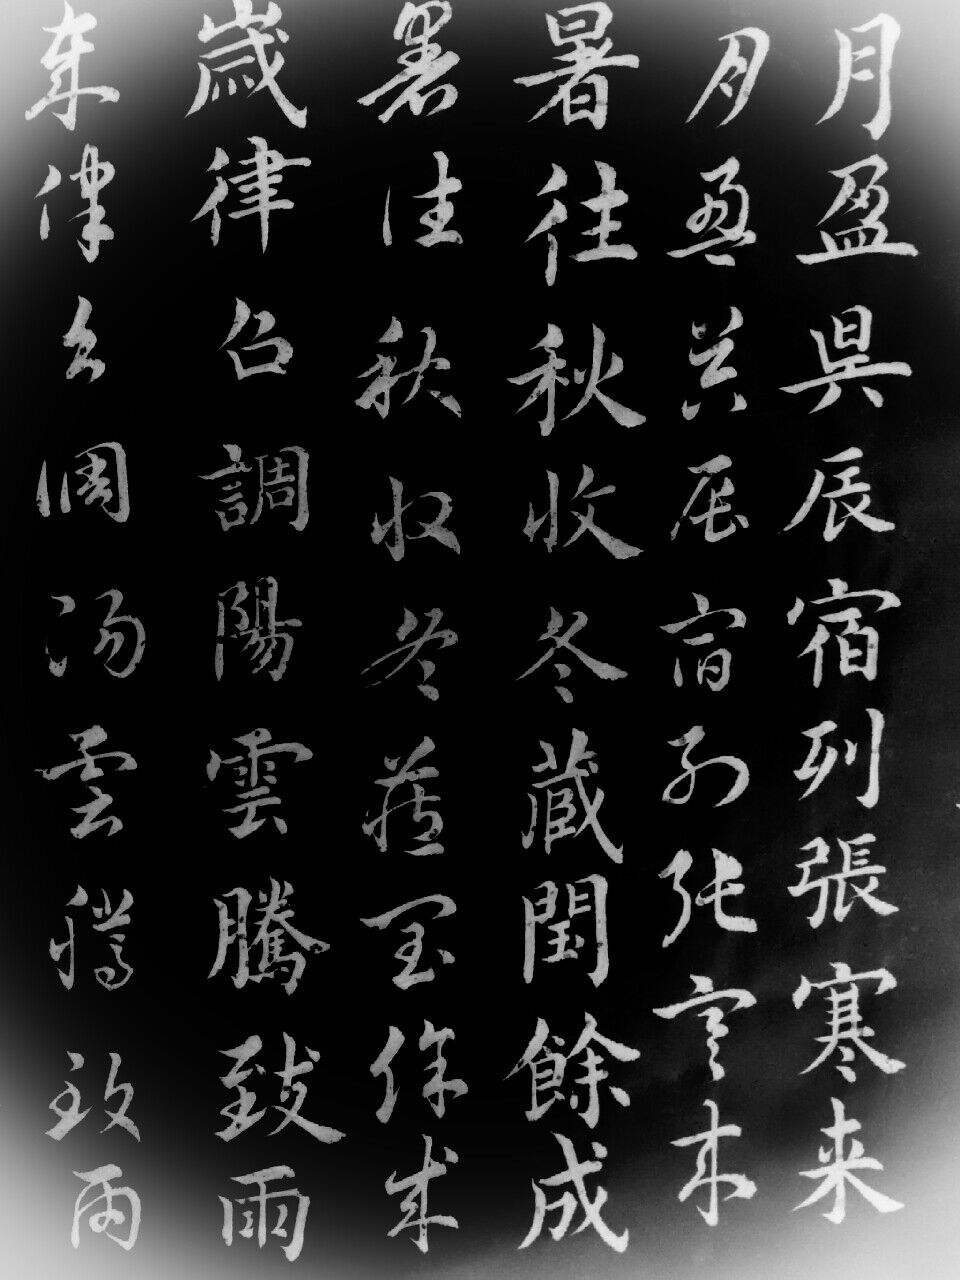 月盈昃辰宿列張寒来
月盈昃辰宿列張寒来
暑往秋收冬藏閏餘成
暑往秋收冬藏閏餘成
歲律召調陽雲騰致雨
歲律召調陽雲騰致雨